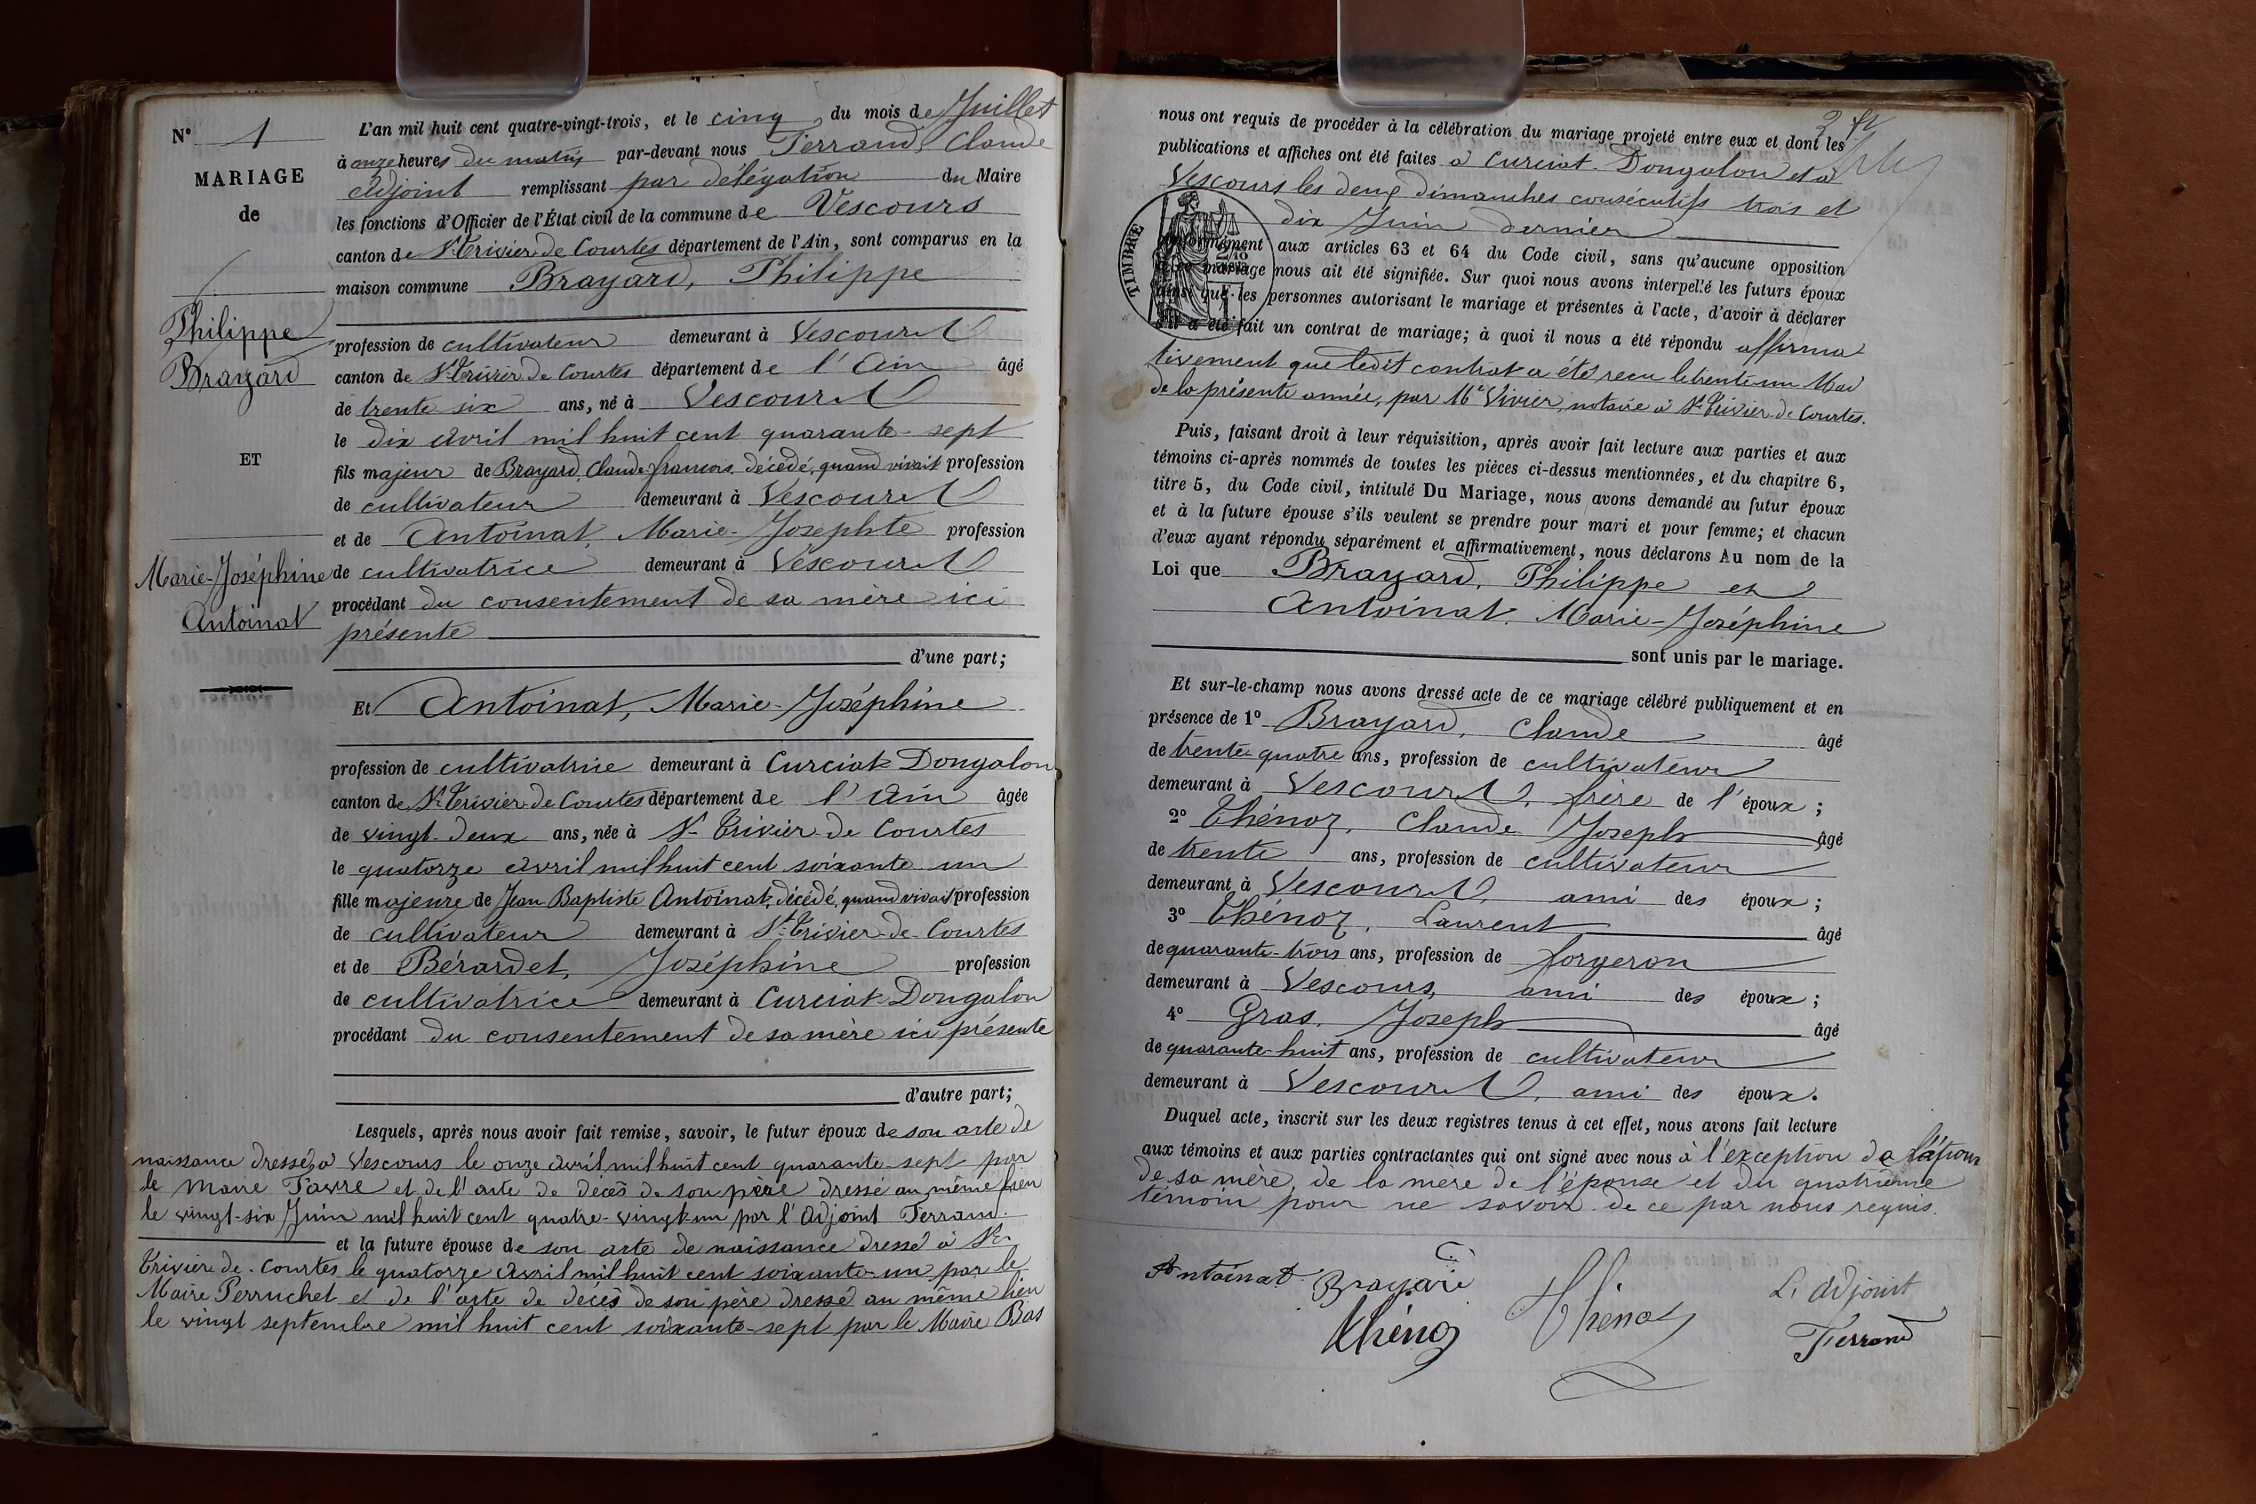 N° 1
MARIAGE
de
Philippe
Brayard
ET
Marie-Joséphine
Antoinat
L'an mil huit cent quatre-vingt-trois, et le cinq du mois de Juillet
à onze heures du matin par-devant nous Ferrand, Claude
adjoint remplissant par délégation du Maire
les fonctions d'Officier de l'État civil de la commune de Vescours
canton de St Trivier de Courtes département de l'Ain, sont comparus en la
maison commune Brayard, Philippe
profession de cultivateur demeurant à Vescours
canton de St Trivier de Courtes département de l'Ain âgé
de trente six ans, né à Vescours
le dix avril mil huit cent quarante-sept
fils majeur de Brayard, Claude-francois, décédé, quand vivait profession
de cultivateur demeurant à Vescours
et de Antoinat, Marie-Josephte profession
de cultivatrice demeurant à Vescours
procédant du consentement de sa mère ici
présente
d'une part;
Et Antoinat, Marie-Joséphine
profession de cultivatrice demeurant à Curciat-Dongalon
canton de St Trivier de Courtes département de l'Ain âgée
de vingt-deux ans, née à St Trivier de Courtes
le quatorze avril mil huit cent soixante-un
fille majeure de Jean Baptiste Antoinat, décédé, quand vivait profession
de cultivateur demeurant à St Trivier-de-Courtes
et de Bérardet, Joséphine profession
de cultivatrice demeurant à Curciat-Dongalon
procédant du consentement de sa mère ici présente
d'autre part;
Lesquels, après nous avoir fait remise, savoir, le futur époux de son acte de
naissance dressé à Vescours le onze avril mil huit cent quarante-sept par
le Maire Favre et de l'acte de décès de son père dressé au même lieu
le vingt-six Juin mil huit cent quatre-vingt-un par l'adjoint Ferrand.
et la future épouse de son acte de naissance dressé à St
Trivier de Courtes le quatorze avril mil huit cent soixante-un par le
Maire Perruchet et de l'acte de décès de son père dressé au même lieu
le vingt septembre mil huit cent soixante-sept par le Maire Bas
nous ont requis de procéder à la célébration du mariage projeté entre eux et dont les
publications et affiches ont été faites à Curciat-Dongalon et à
Vescours les deux dimanches consécutifs trois et
dix Juin dernier
TIMBRE
2/10
conformément aux articles 63 et 64 du Code civil, sans qu'aucune opposition
mariage nous ait été signifiée. Sur quoi nous avons interpellé les futurs époux
ainsi que les personnes autorisant le mariage et présentes à l'acte, d'avoir à déclarer
s'il a été fait un contrat de mariage; à quoi il nous a été répondu affirma
tivement que ledit contrat a été recu le trente un Mai
de la présente année, par Me Vivier, notaire à St Trivier-de-Courtes.
Puis, faisant droit à leur réquisition, après avoir fait lecture aux parties et aux
témoins ci-après nommés de toutes les pièces ci-dessus mentionnées, et du chapitre 6,
titre 5, du Code civil, intitulé Du Mariage, nous avons demandé au futur époux
et à la future épouse s'ils veulent se prendre pour mari et pour femme; et chacun
d'eux ayant répondu séparément et affirmativement, nous déclarons Au nom de la
Loi que Brayard, Philippe et
Antoinat, Marie-Joséphine
sont unis par le mariage.
Et sur-le-champ nous avons dressé acte de ce mariage célébré publiquement et en
présence de 1° Brayard, Claude âgé
de trente-quatre ans, profession de cultivateur
demeurant à Vescours, frère de l'époux;
2° Thénoz, Claude Joseph âgé
de trente ans, profession de cultivateur
demeurant à Vescours, ami des époux;
3° Thénoz, Laurent âgé
de quarante-trois ans, profession de forgeron
demeurant à Vescours, ami des époux;
4° Gras, Joseph âgé
de quarante-huit ans, profession de cultivateur
demeurant à Vescours, ami des époux.
Duquel acte, inscrit sur les deux registres tenus à cet effet, nous avons fait lecture
aux témoins et aux parties contractantes qui ont signé avec nous à l'exception de l'époux
de sa mère, de la mère de l'épouse et du quatrième
témoin pour ne savoir de ce par nous requis.
Antoinat Brayard Thénoz L'adjoint
Thénoz Ferrand